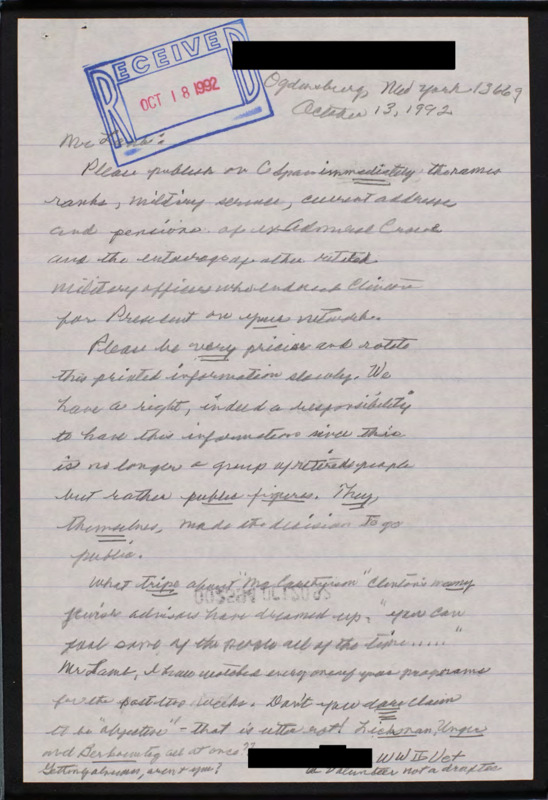 RECEIVED
OCT 18 1992
Ogdensburg, New York 13669
October 13, 1992
Mr Lamb:
Please publish on Cspan immediately the names
ranks, military service, current address
and pensions of ex Admiral Crowe
and the entourage of other retired
military officers who endorsed Clinton
for President on your network.
Please be very precise and rotate
this printed information slowly. We
have a right, indeed a responsibility
to have this information since this
is no longer a group of retired people
but rather public figures. They,
themselves, made the decision to go
public.
What tripe about "Mc Carthyism" Clinton's many
advisors have dreamed up. "You can
fool some of the people all of the time....."
Mr Lamb, I have watched every many of your programs
for the past two weeks. Don't you dare claim
to be "objective" - that is utter rot! Unger
and all at once??
Getting aren't you?
WW II Vet
a volunteer not a draftee